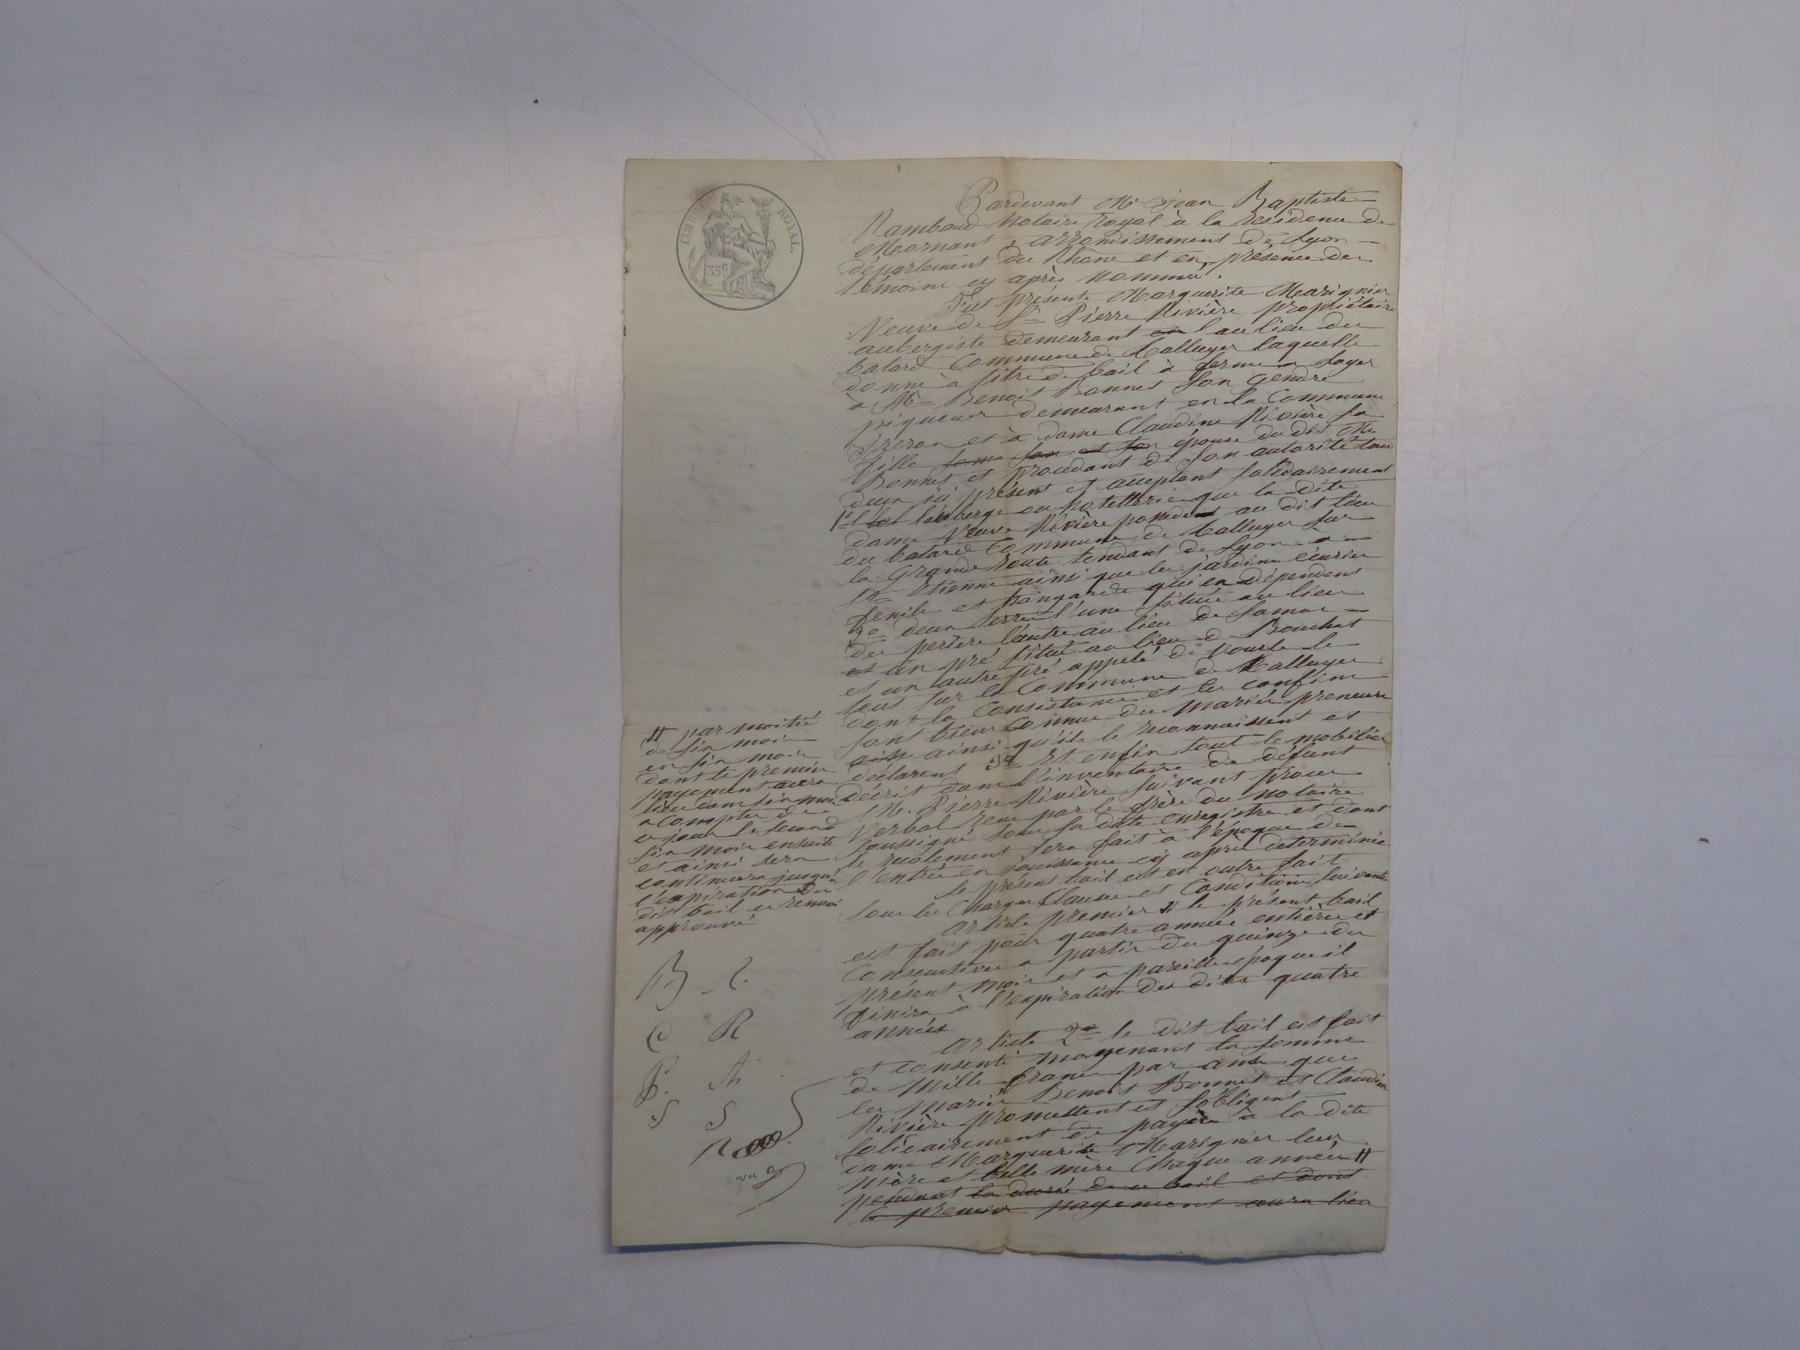 TIMBRE ROYAL.
35 c
Pardevant Me Jean Baptiste
Rambaud Notaire Royal à la résidence de
Mornant, arrondissement de Lyon
département du Rhône et en présence des
témoins cy après nommés.
Fut présente Marguerite Marignier
Veuve de Sr Pierre Rivière propriétaire
aubergiste demeurant au lieu du
batard Commune de talluyer laquelle
donne à titre de bail à ferme a loyer
à Mr Benoit Bonnet son gendre
piqueur demeurant en la Commune
et à dame Claudine Rivière sa
fille épouse du dit Mr
Bonnet et procédant de son autorité tous
deux ici présent et acceptant solidairement
1º l'auberge ou hotellerie que la dite
dame Veuve Rivière possède au dit lieu
du batard Commune de talluyer sur
la Grande Route tendant de Lyon
St Etienne ainsi que les jardins écuries
fenils et hangards qui en dépendent
2º deux terres l'une située au lieu
du l'autre au lieu de
et un pré situé au lieu de Bouchat
et un autre pré appelé de le
tous sur la Commune de talluyer
dont la Consistance et les confins
sont bien Connus des mariés preneurs
ainsi qu'ils le reconnaissent et
déclarent 3º Et enfin tout le mobilier
décrit dans l'inventaire du défunt
Mr. Pierre Rivière suivant procès
Verbal reçu par le frère du Notaire
soussigné sous sa date enregistré et dont
le recolement sera fait à l'époque de
l'entrée en jouissance cy après déterminée
Le présent bail est en outre fait
sous les Charges Clauses et Conditions suivantes
Article premier le présent bail
est fait pour quatre années entières et
Consécutives a partir du quinze du
présent mois et a pareille époque il
finira à l'expiration des dites quatre
années
Article 2e le dit bail est fait
et consenti moyenant la somme
de Mille francs par ans que
les mariés Benoit Bonnet et Claudine
Rivière promettent et s'obligent
solidairement de payer à la dite
dame Marguerite Marignier leur
mère et belle mère Chaque année #
pendant la durée de ce bail et dont
le premier payement aura lieu
# par moitié
de six mois
en six mois
dont le premier
payement aura
lieu dans six mois
a compter de
ce jour le second
six mois ensuite
et ainsi sera
continuera jusqu'à
l'expiration du
dit bail ce renvoi
approuvé
B
C R
S S